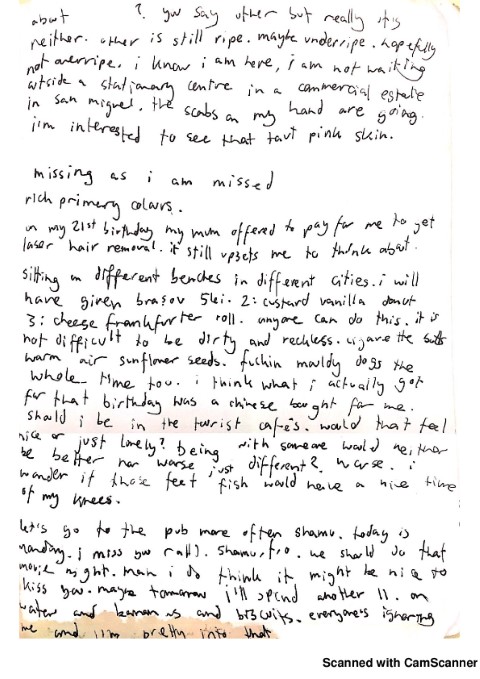 about ? you say other but really it is
neither. other is still ripe. maybe underripe. hopefully
not overripe. i know i am here, i am not waiting
outside a stationary centre in a commercial estate
in san miguel. the scabs on my hand are going.
i'm interested to see that taut pink skin.
missing as i am missed
rich primary colours.
on my 21st birthday my mum offered to pay for me to get
laser hair removal. it still upsets me to think about.
sitting on different benches in different cities. i will
have given brasov 5ki. 2: custard vanilla donut
3: cheese frankfurter roll. anyone can do this. it is
not difficult to be dirty and reckless. cigarette butts
warm air sunflower seeds. fuckin mouldy dogs the
whole time too. i think what i actually got
for that birthday was a chinese bought for me.
should i be in the tourist cafe's. would that feel
nice or just lonely? being with someone would neither
be better nor worse just different?. worse. i
wonder if those feet fish would have a nice time
of my knees.
let's go to the pub more often shamu. today is
monday. i miss you
shamu, we should do that
movie night. man i do think it might be nice to
kiss you. maybe tomorrow i'll spend another 11. on
water and bananas and biscuits. everyone's ignoring
me and i'm pretty into that
Scanned with CamScanner